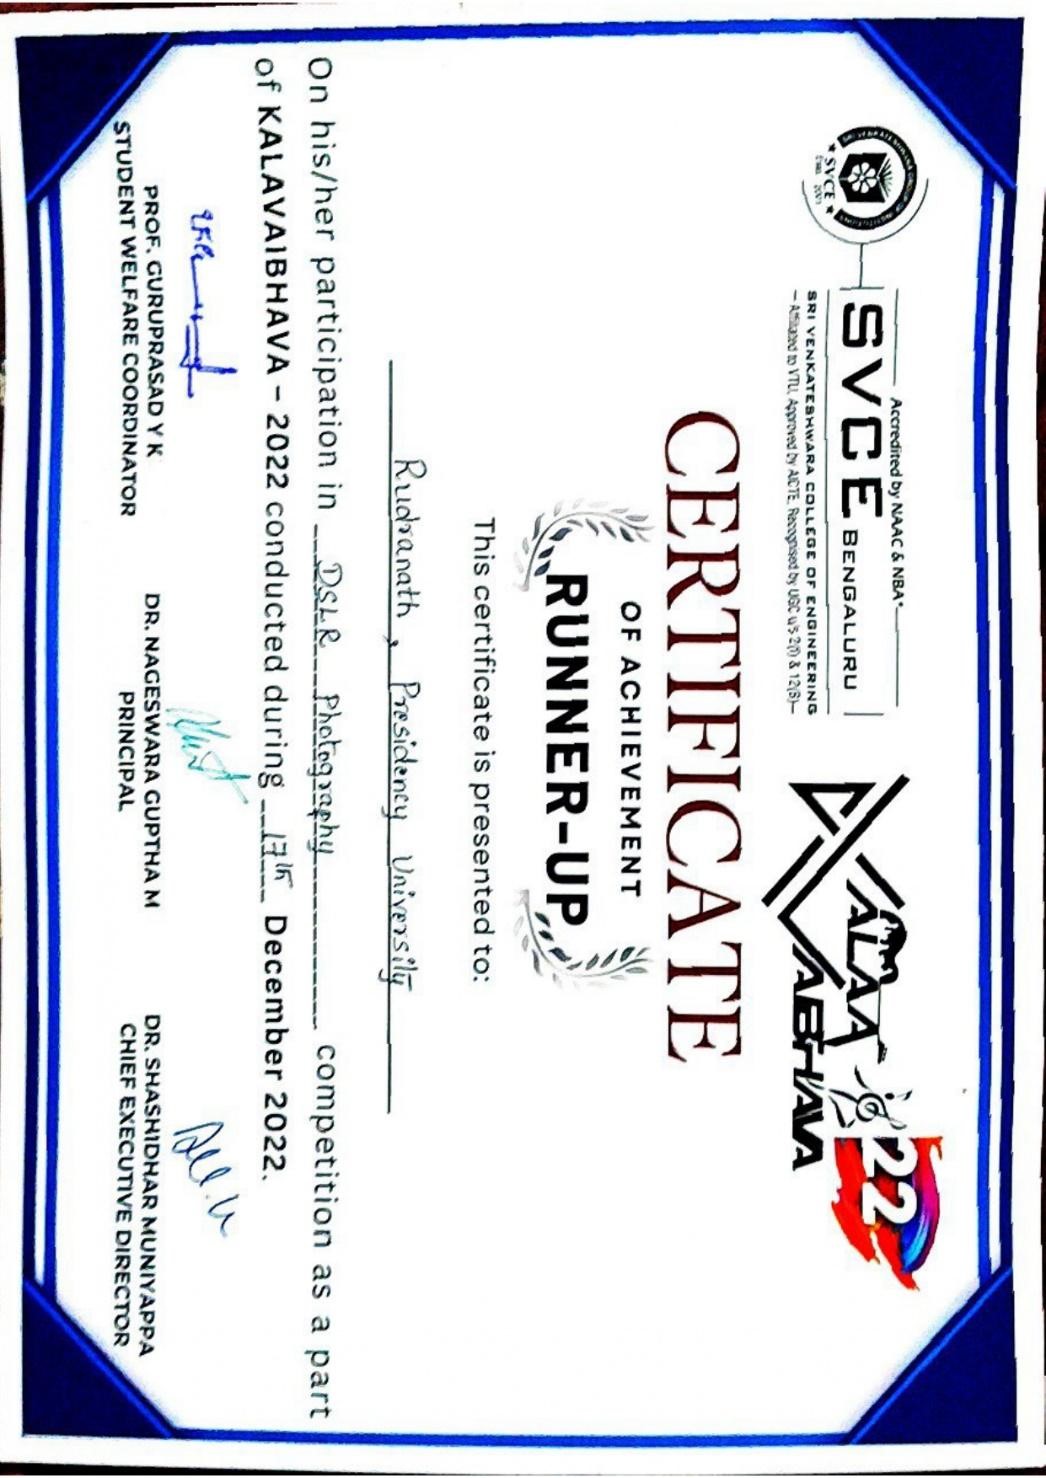 Accredited by NAAC & NBA*
SVCE BENGALURU
SRI VENKATESHWARA COLLEGE OF ENGINEERING
Affiliated to VTU, Approved by AICTE, Recognised by UGC u/s 2(f) & 12(B)
SVCE
Estd. 2001
KALAA
VAIBHAVA
22
CERTIFICATE
OF ACHIEVEMENT
RUNNER-UP
This certificate is presented to:
Rudranath, Presidency University
On his/her participation in DSLR Photography competition as a part
of KALAVAIBHAVA – 2022 conducted during 17th December 2022.
PROF. GURUPRASAD Y K
STUDENT WELFARE COORDINATOR
DR. NAGESWARA GUPTHA M
PRINCIPAL
DR. SHASHIDHAR MUNIYAPPA
CHIEF EXECUTIVE DIRECTOR